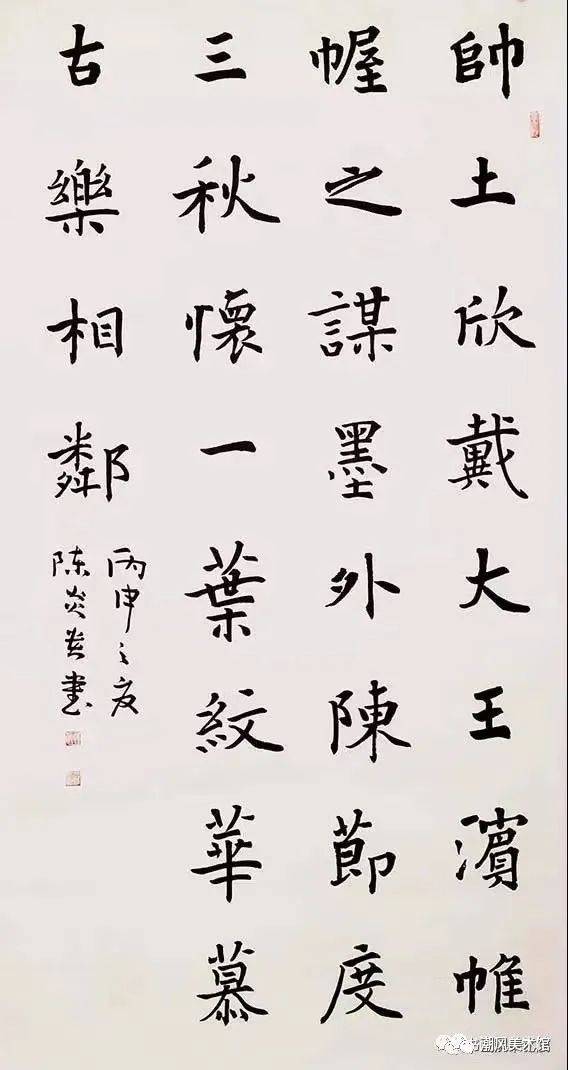 帥土欣戴大王濱帷
幄之謀墨外陳節度
三秋懷一葉紋華慕
古樂相鄰
丙申之夏
陈炎書
潮风美术馆